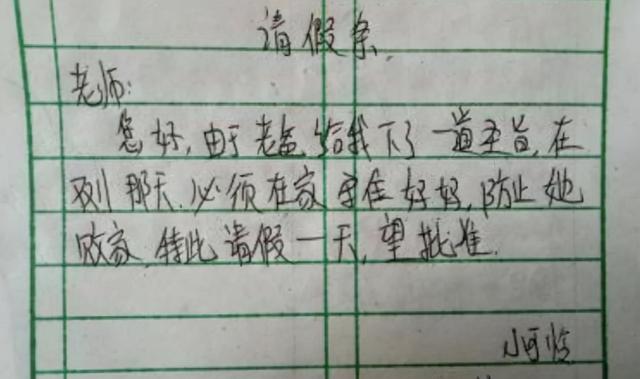 请假条
老师:
您好,由于老爸给我下了一道圣旨,在
双11那天,必须在家守住好妈,防止她
败家,特此请假一天,望批准.
小可怜